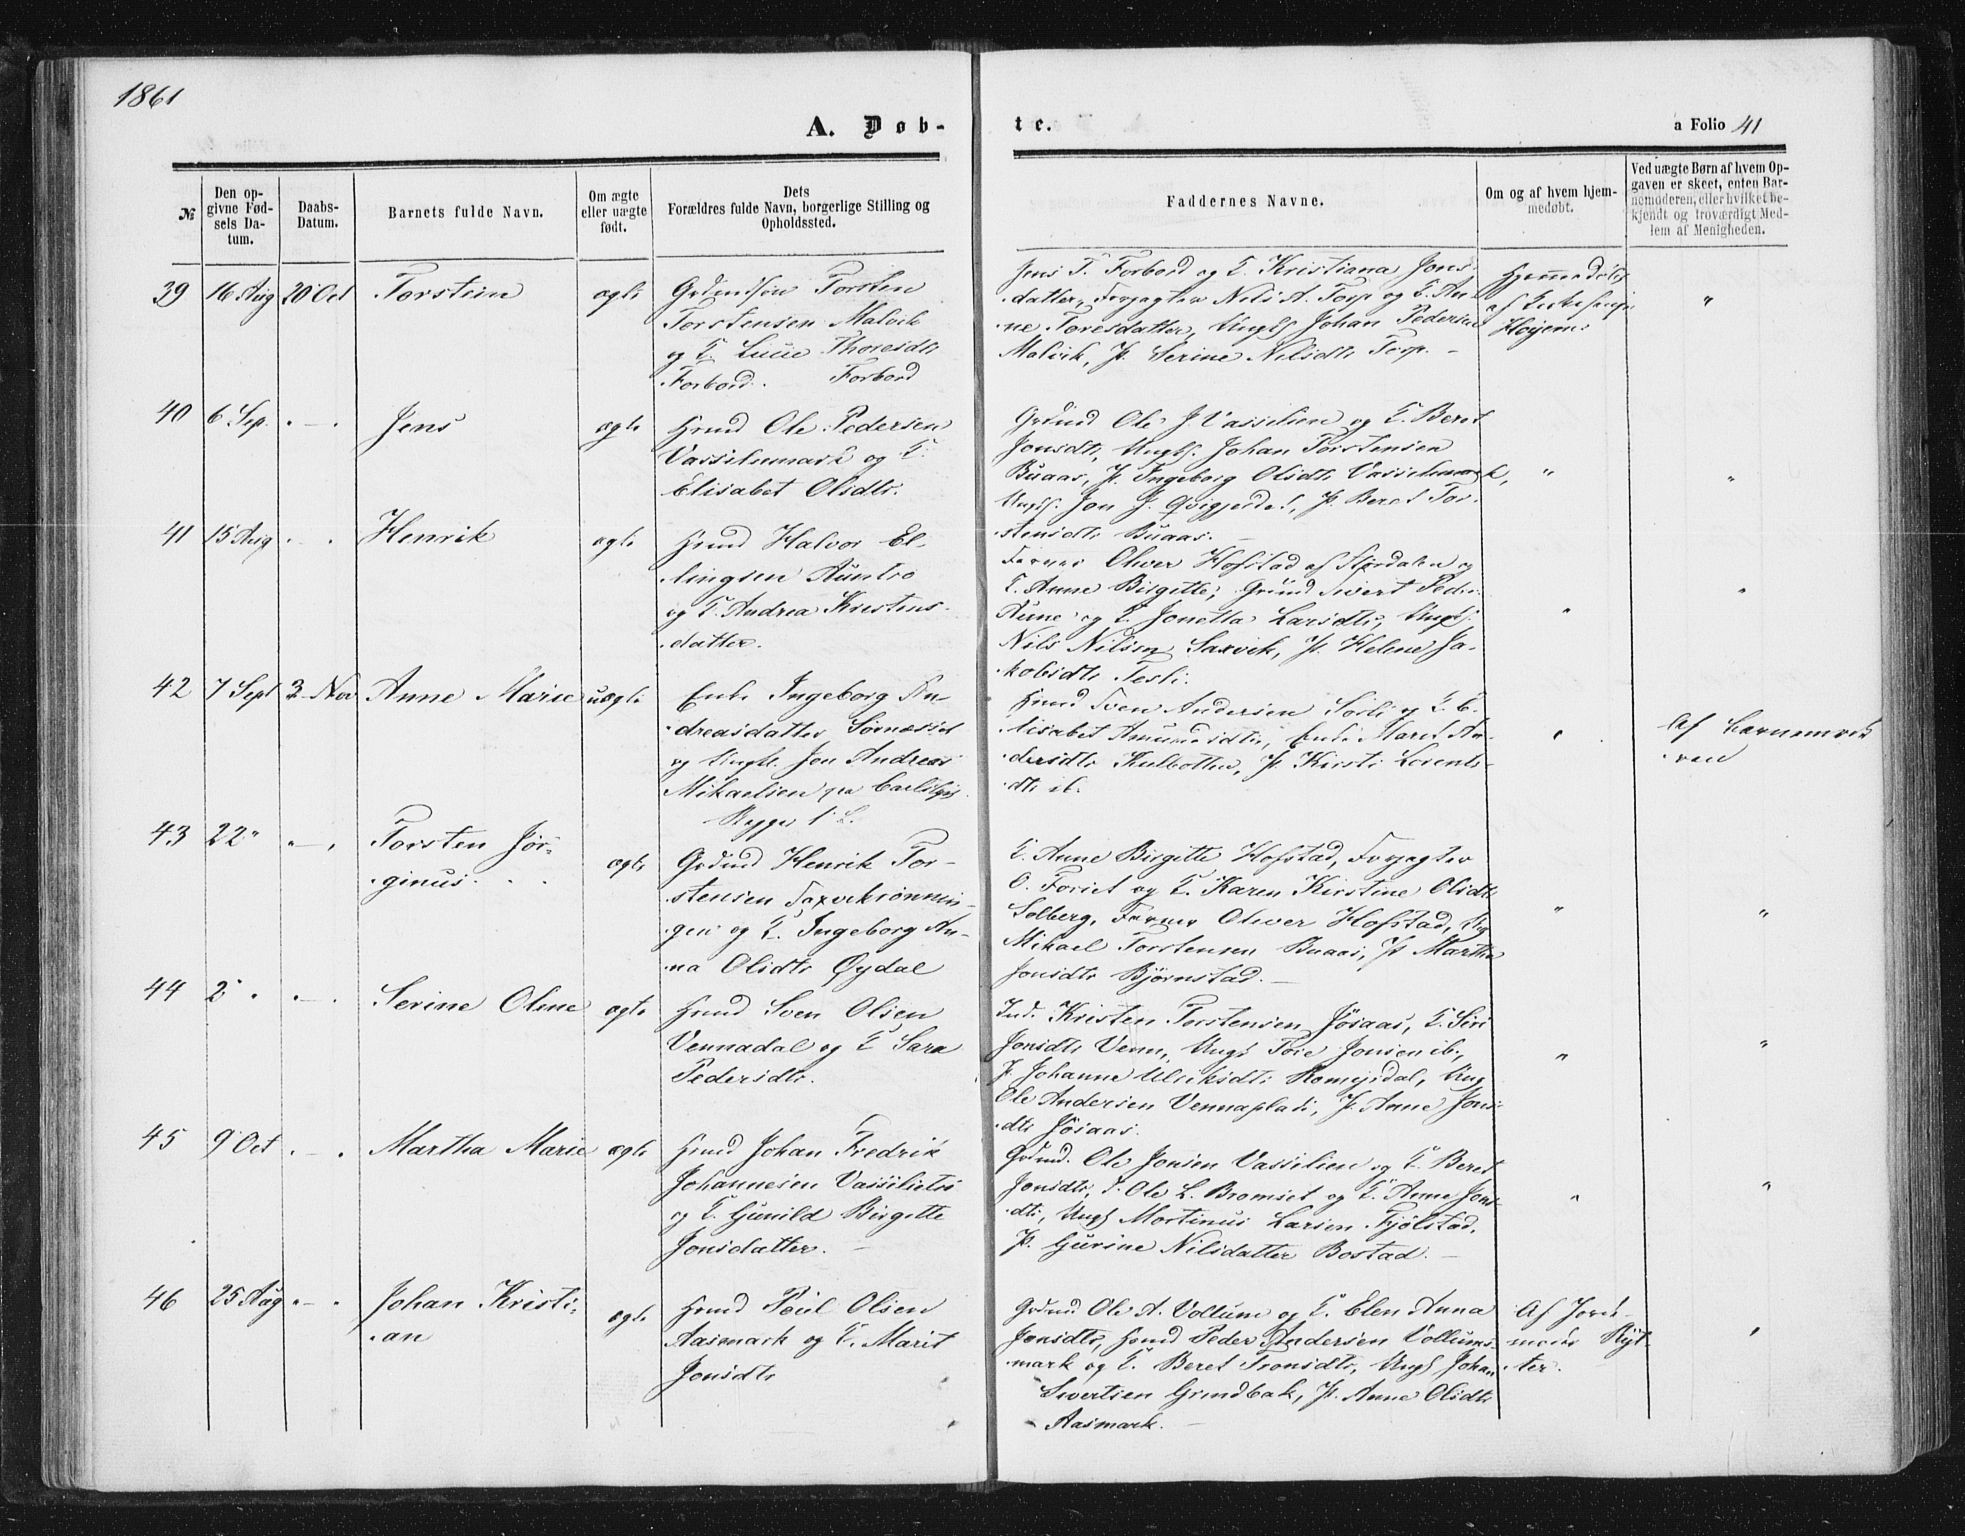 1861
A. Døb-
te.
a Folio 41
№
Den op-
givne Fød-
sels Da-
tum.
Daabs-
Datum.
Barnets fulde Navn.
Om ægte
eller uægte
født.
Dets
Forældres fulde Navn, borgerlige Stilling og
Opholdssted.
Faddernes Navne.
Om og af hvem hjem-
medøbt.
Ved uægte Børn af hvem Op-
gaven er skeet, enten Bar-
nemoderen, eller hvilket be-
kjendt og troværdigt Med-
lem af Menigheden.
39 16 Aug 20 Oct Torstein ægte
Torsten
Torstensen Malvik
og E. Thoresdtr
Forbord. Forbord
Jens T. Forbord og E. Kristiana Jons-
datter, Forpagter Nils A. Torp og E. An-
ne Toresdatter, Ungk. Johan Pedersen
Malvik, P. Serine Nilsdtr Torp. -
Højem "
40 6 Sep. " — Jens ægte
Hmd Ole Pedersen
Vassliemark og E.
Elisabet Olsdtr.
Grdmd Ole J Vasselien og E Beret
Jonsdtr, Ungk. Johan Torstensen
Buaas, P. Ingeborg Olsdtr Vasliemark,
Ungk. Jon J. P. Beret Tor-
stensdtr Buaas. —
" "
41 15 Aug " — " Henrik ægte
Hmd Halvor El-
lingsen
og E. Andrea Kristens-
datter.
Oliver Hofstad af Størdalen og
E. Anne Birgitte, Grdmd Sivert Peder
Aune og E. Jonetta Larsdtr, Ungk.
Nils Nilsen Saxvik, P. Helene Ja-
kobsdtr Tesli.
" "
42 7 Sept 3 Nov Anne Marie uægte
Enke Ingeborg An-
dreasdatter
og Ungk. Jon Andreas
Mikaelsen
Hmd Sven Andersen og E. E-
lisabet Amundsdtr, Enke Marit An-
dersdtr Kulbotten, P. Kirsti Lorents-
dtr ib.
"
Af
43 22 " " — " Torsten Jør-
ginus. ægte
Grdmd Henrik Tor-
stensen
gen og E. Ingeborg An-
na Olsdtr Øydal
E. Anne Birgitte Hofstad, Forpagter
O. og E. Karen Kirstine Olsdtr
Solberg, Oliver Hofstad,
Mikael Torstensen Buaas, P. Martha
Jonsdtr Bjørnstad. —
" "
44 2 " " — " Serine Oline ægte
Hmd Sven Olsen
Vennadal og E Sara
Pedersdtr.
Ind. Kristen Torstensen Jøsaas, E. Siri
Jonsdtr Venn, Ungk Tore Jonsen ib.,
P. Johanne Ulriksdtr Romsdal, Ung
Ole Andersen P. Anne Jons-
dtr Jøsaas.
" "
45 9 Oct " — " Martha Marie ægte
Hmd Johan Fredrik
Johannesen
og E. Gunild Birgitte
Jonsdatter. —
Grdmd. Ole Jonsen Vasselien og E. Beret
Jonsdtr, Ole L. Bromset og E. Anne Jons-
dtr, Ungk Martinus Larsen Fjølstad,
P. Gurine Nilsdatter Bostad. —
" "
46 25 Aug " — " Johan Kristi-
an ægte
Hmd Paul Olsen
Aasmark og E. Marit
Jonsdtr
Grdmd Ole A. Vollum og E. Elen Anna
Jonsdtr, Hmd Peder Andersen Vollums-
mark og E. Beret Tronsdtr, Ungk Johan
Sivertsen Grindbak, P. Anne Olsdtr
Aasmark. —
Af Jord-
moder Ryt-
ter. "